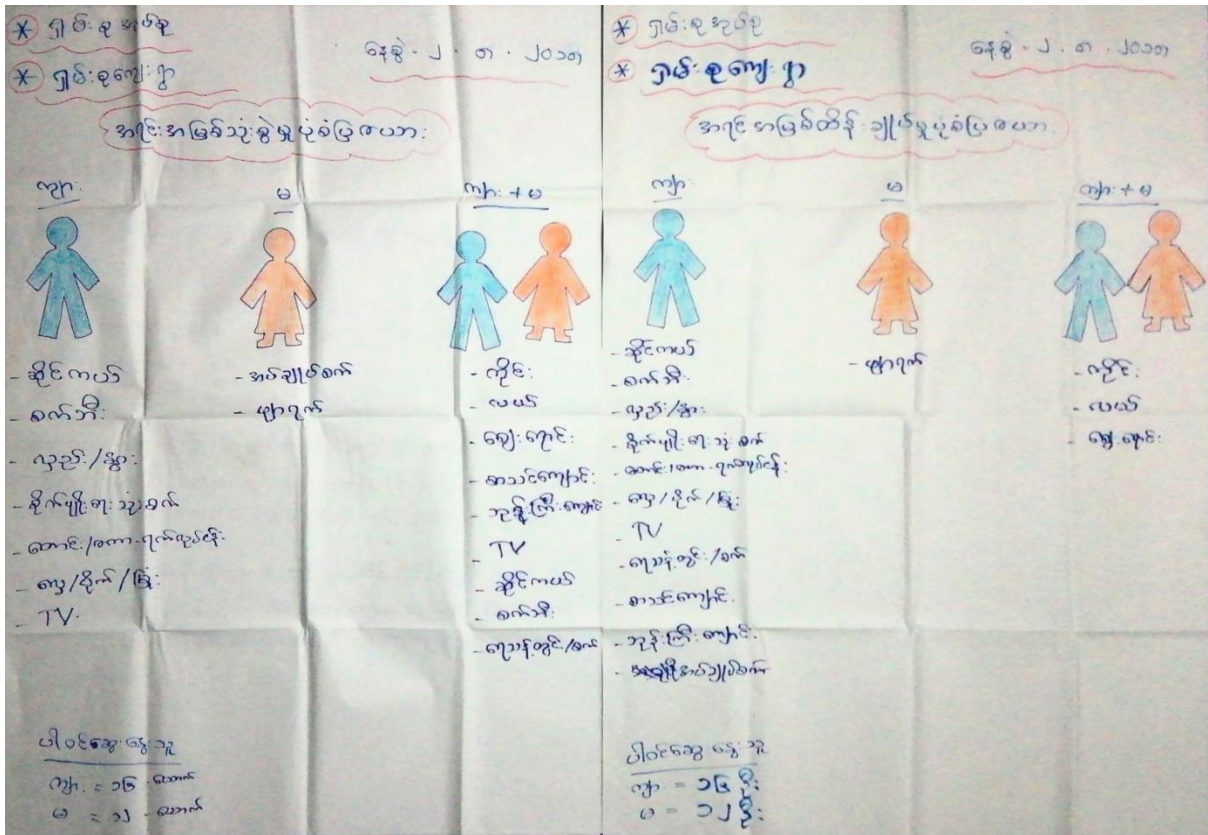 * ရှမ်းစုအုပ်စု
* ရှမ်းစုကျေးရွာ
နေ့စွဲ - ၂ . ၈ . ၂၀၁၈
အရင်းအမြစ်သုံးစွဲမှုပုံစံပြဇယား
ကျား
မ
ကျား + မ
- ဆိုင်ကယ်
- စက်ဘီး
- လှည်း/နွား
- စိုက်ပျိုးရေးသုံးစက်
- တောင်း/စကာ-ရက်လုပ်ငန်း
- လှေ/ပိုက်/မြှုံး
- TV
- အပ်ချုပ်စက်
- ဖျာရက်
- ကိုင်း
- လယ်
- ဈေးရောင်း
- စာသင်ကျောင်း
- ဘုန်းကြီးကျောင်း
- TV
- ဆိုင်ကယ်
- စက်ဘီး
- ရေသန့်တွင်း/စက်
ပါဝင်ဆွေးနွေးသူ
ကျား = ၁၆ - ယောက်
မ = ၁၂ - ယောက်
* ရှမ်းစုအုပ်စု
* ရှမ်းစုကျေးရွာ
နေ့စွဲ - ၂ . ၈ . ၂၀၁၈
အရင်းအမြစ်ထိန်းချုပ်မှုပုံစံပြဇယား
ကျား
မ
ကျား + မ
- ဆိုင်ကယ်
- စက်ဘီး
- လှည်း/နွား
- စိုက်ပျိုးရေးသုံးစက်
- တောင်း/စကာ-ရက်လုပ်ငန်း
- လှေ/ပိုက်/မြှုံး
- TV
- ရေသန့်တွင်း/စက်
- စာသင်ကျောင်း
- ဘုန်းကြီးကျောင်း
- အပ်ချုပ်စက်
- ဖျာရက်
- ကိုင်း
- လယ်
- ဈေးရောင်း
ပါဝင်ဆွေးနွေးသူ
ကျား = ၁၆ ဦး
မ = ၁၂ ဦး